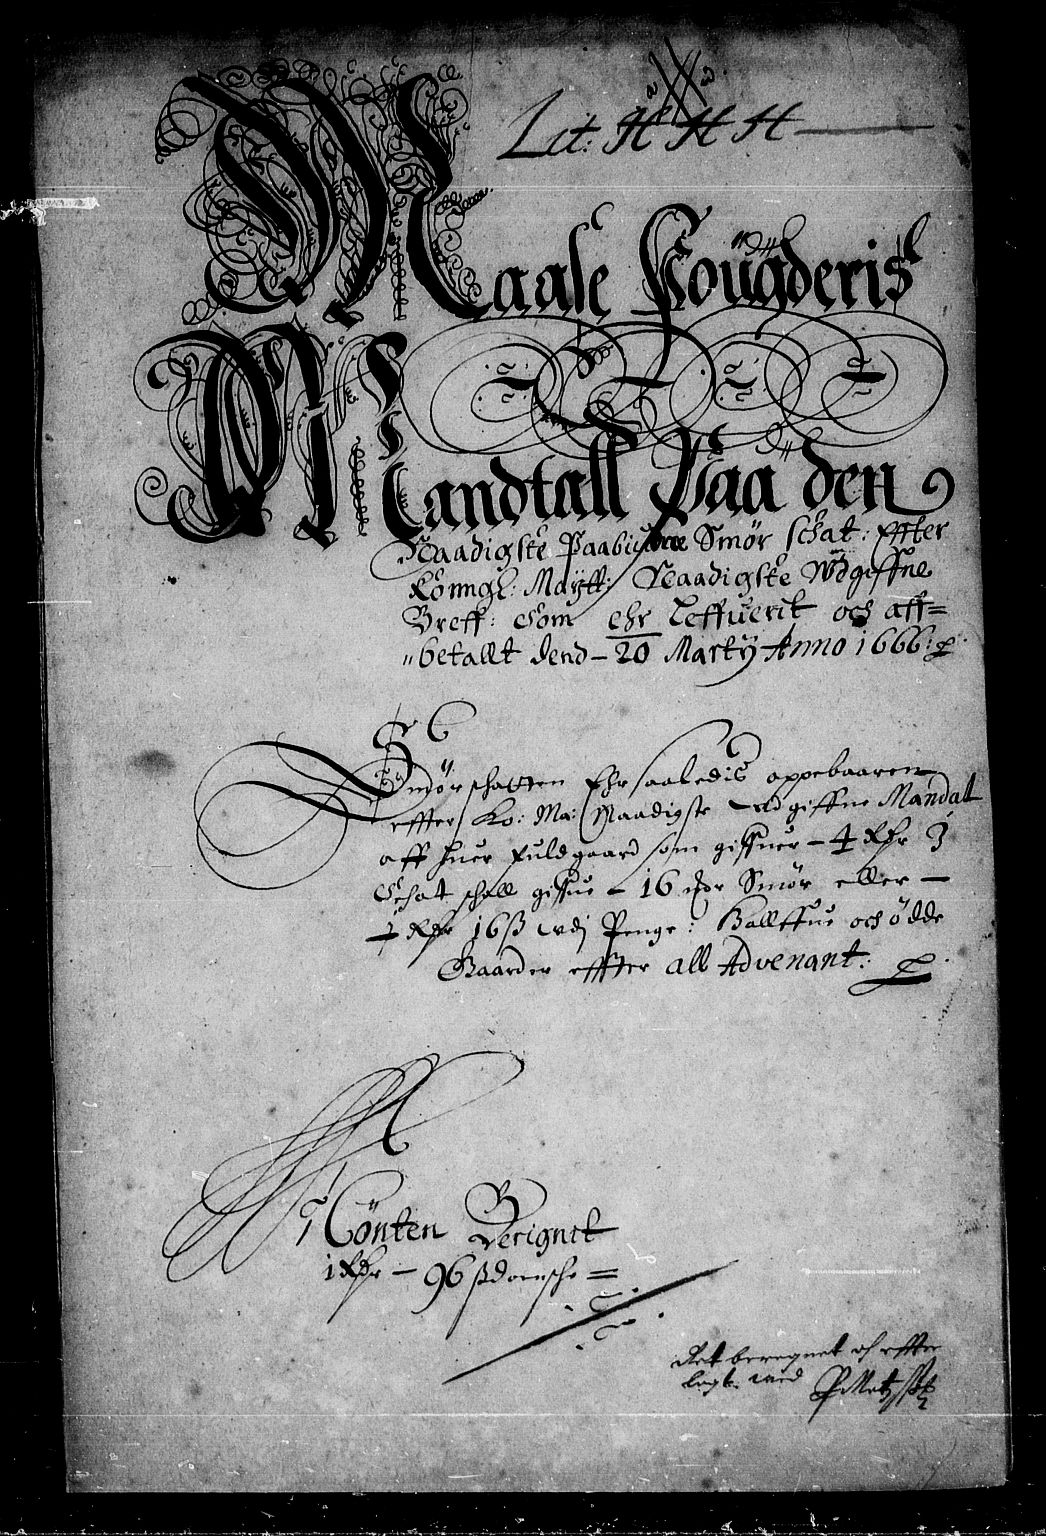 Lit: H H H
Maase Fougderis
Mandtall Paa den
Naadigste Paabudne Smør schat: Effter
Konngl: Maytt: Naadigste Udgiffne
Breff: som ehr Leffuerit och aff=
betallt dend - 20 Marty Anno 1666:
Smørschatten Ehr saaledis oppebaaren
effter Ko: Ma: Naadigste udgiffne Mandat
aff huer fuldgaard som giffuer - 4 Rdr J
Schat schall giffue - 16 Smør eller -
1 Rdr 16 ß udj Penge: Hallffue och Ødde
Gaarder effter all Advenant:
Mønten Berignet
1 Rdr - 96 ß danske =
Ret beregnet och effter
lagt. med